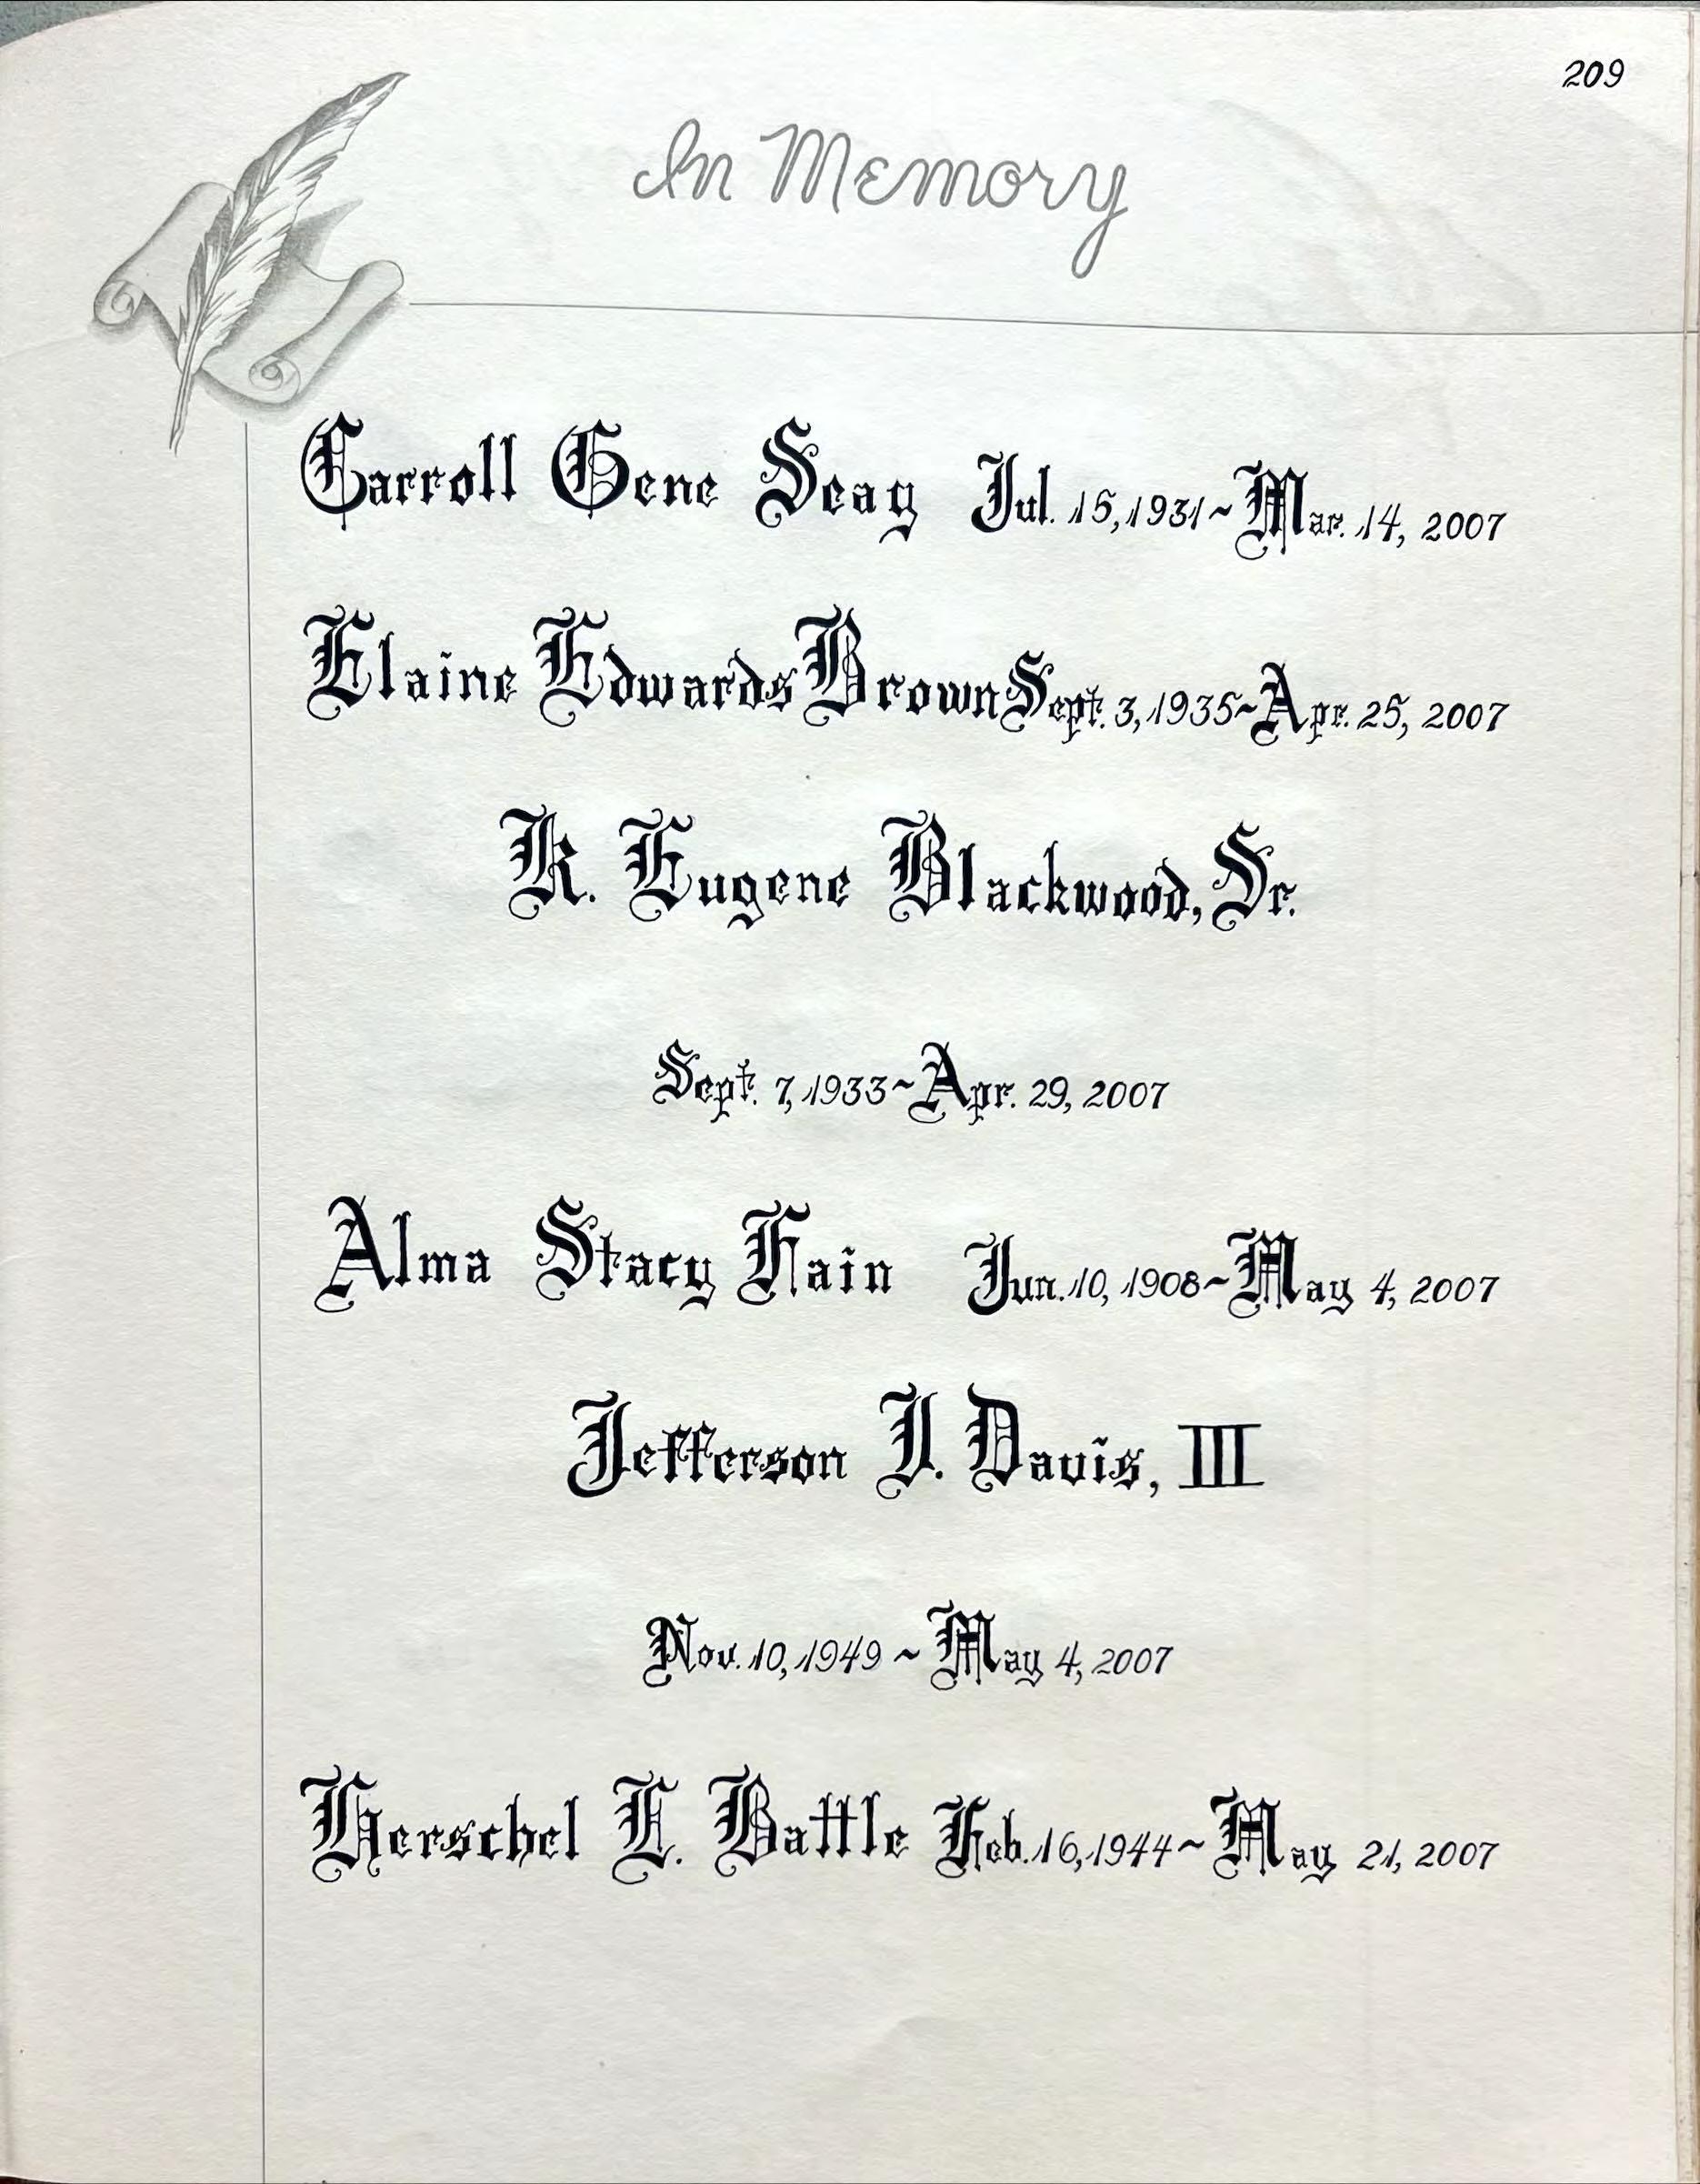 209
In Memory
Carroll Gene Seay Jul. 15, 1931~Mar. 14, 2007
Elaine Edwards Brown Sept. 3, 1935~Apr. 25, 2007
K. Eugene Blackwood, Sr.
Sept. 7, 1933~Apr. 29, 2007
Alma Stacy Fain Jun. 10, 1908~May 4, 2007
Jefferson J. Davis, III
Nov. 10, 1949 ~ May 4, 2007
Herschel L. Battle Feb. 16, 1944~May 21, 2007